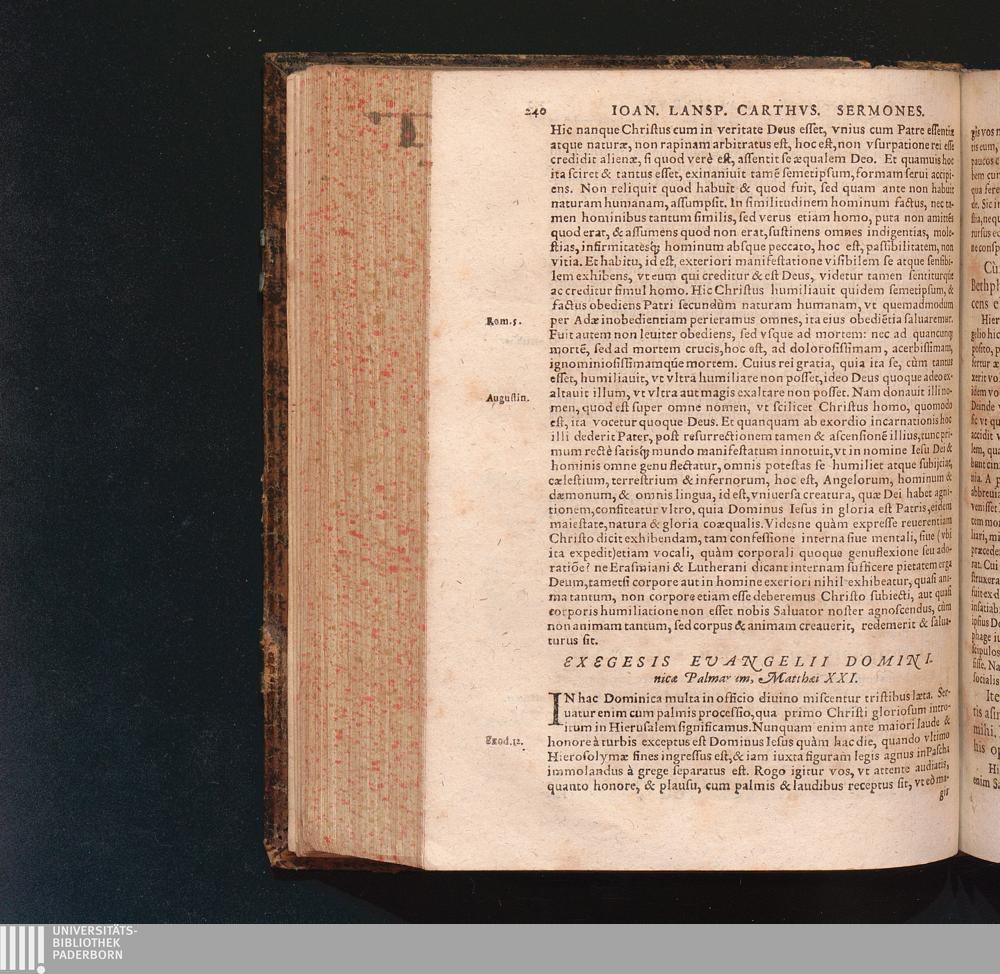 240 IOAN. LANSP. CARTHVS. SERMONES.
Hic nanque Christus cum in veritate Deus esset, vnius cum Patre essentiæ
atque naturæ, non rapinam arbitratus est, hoc est, non vsurpatione rei esse
credidit alienæ, si quod verè est, assentit se æqualem Deo. Et quamuis hoc
ita sciret & tantus esset, exinaniuit tamē semetipsum, formam serui accipi-
ens. Non reliquit quod habuit & quod fuit, sed quam ante non habuit
naturam humanam, assumpsit. In similitudinem hominum factus, nec ta-
men hominibus tantum similis, sed verus etiam homo, puta non amittēs
quod erat, & assumens quod non erat, sustinens omnes indigentias, mole-
stias, infirmitatesq; hominum absque peccato, hoc est, passibilitatem, non
vitia. Et habitu, id est, exteriori manifestatione visibilem se atque sensibi-
lem exhibens, vt eum qui creditur & est Deus, videtur tamen sentiturque
ac creditur simul homo. Hic Christus humiliauit quidem semetipsum, &
factus obediens Patri secundùm naturam humanam, vt quemadmodum
Rom.5. per Adæ inobedientiam perieramus omnes, ita eius obediētia saluaremur.
Fuit autem non leuiter obediens, sed vsque ad mortem: nec ad quancunq;
mortē, sed ad mortem crucis, hoc est, ad dolorosissimam, acerbissimam,
ignominiosissimamqúe mortem. Cuius rei gratia, quia ita se, cùm tantus
esset, humiliauit, vt vltra humiliare non posset, ideo Deus quoque adeo ex-
Augustin. altauit illum, vt vltra aut magis exaltare non posset. Nam donauit illi no-
men, quod est super omne nomen, vt scilicet Christus homo, quomodo
est, ita vocetur quoque Deus. Et quanquam ab exordio incarnationis hoc
illi dederit Pater, post resurrectionem tamen & ascensionē illius, tunc pri-
mum rectè satisq; mundo manifestatum innotuit, vt in nomine Iesu Dei &
hominis omne genu flectatur, omnis potestas se humiliet atque subijciat,
cælestium, terrestrium & infernorum, hoc est, Angelorum, hominum &
dæmonum, & omnis lingua, id est, vniuersa creatura, quæ Dei habet agni-
tionem, confiteatur vltro, quia Dominus Iesus in gloria est Patris, eidem
maiestate, natura & gloria coæqualis. Videsne quàm expresse reuerentiam
Christo dicit exhibendam, tam confessione interna siue mentali, siue (vbi
ita expedit) etiam vocali, quàm corporali quoque genuflexione seu ado-
ratiōe? ne Erasmiani & Lutherani dicant internam sufficere pietatem erga
Deum, tametsi corpore aut in homine exeriori nihil exhibeatur, quasi ani-
ma tantum, non corpore etiam esse deberemus Christo subiecti, aut quasi
corporis humiliatione non esset nobis Saluator noster agnoscendus, cùm
non animam tantum, sed corpus & animam creauerit, redemerit & salua-
turus sit.
EXEGESIS EVANGELII DOMINI-
nicæ Palmarum, Matthæi XXI.
IN hac Dominica multa in officio diuino miscentur tristibus læta. Ser-
uatur enim cum palmis processio, qua primo Christi gloriosum intro-
itum in Hierusalem significamus. Nunquam enim ante maiori laude &
Exod.12. honore à turbis exceptus est Dominus Iesus quàm hac die, quando vltimo
Hierosolymæ fines ingressus est, & iam iuxta figuram legis agnus in Pascha
immolandus à grege separatus est. Rogo igitur vos, vt attente audiatis,
quanto honore, & plausu, cum palmis & laudibus receptus sit, vt eò ma-
gis
UNIVERSITÄTS-
BIBLIOTHEK
PADERBORN